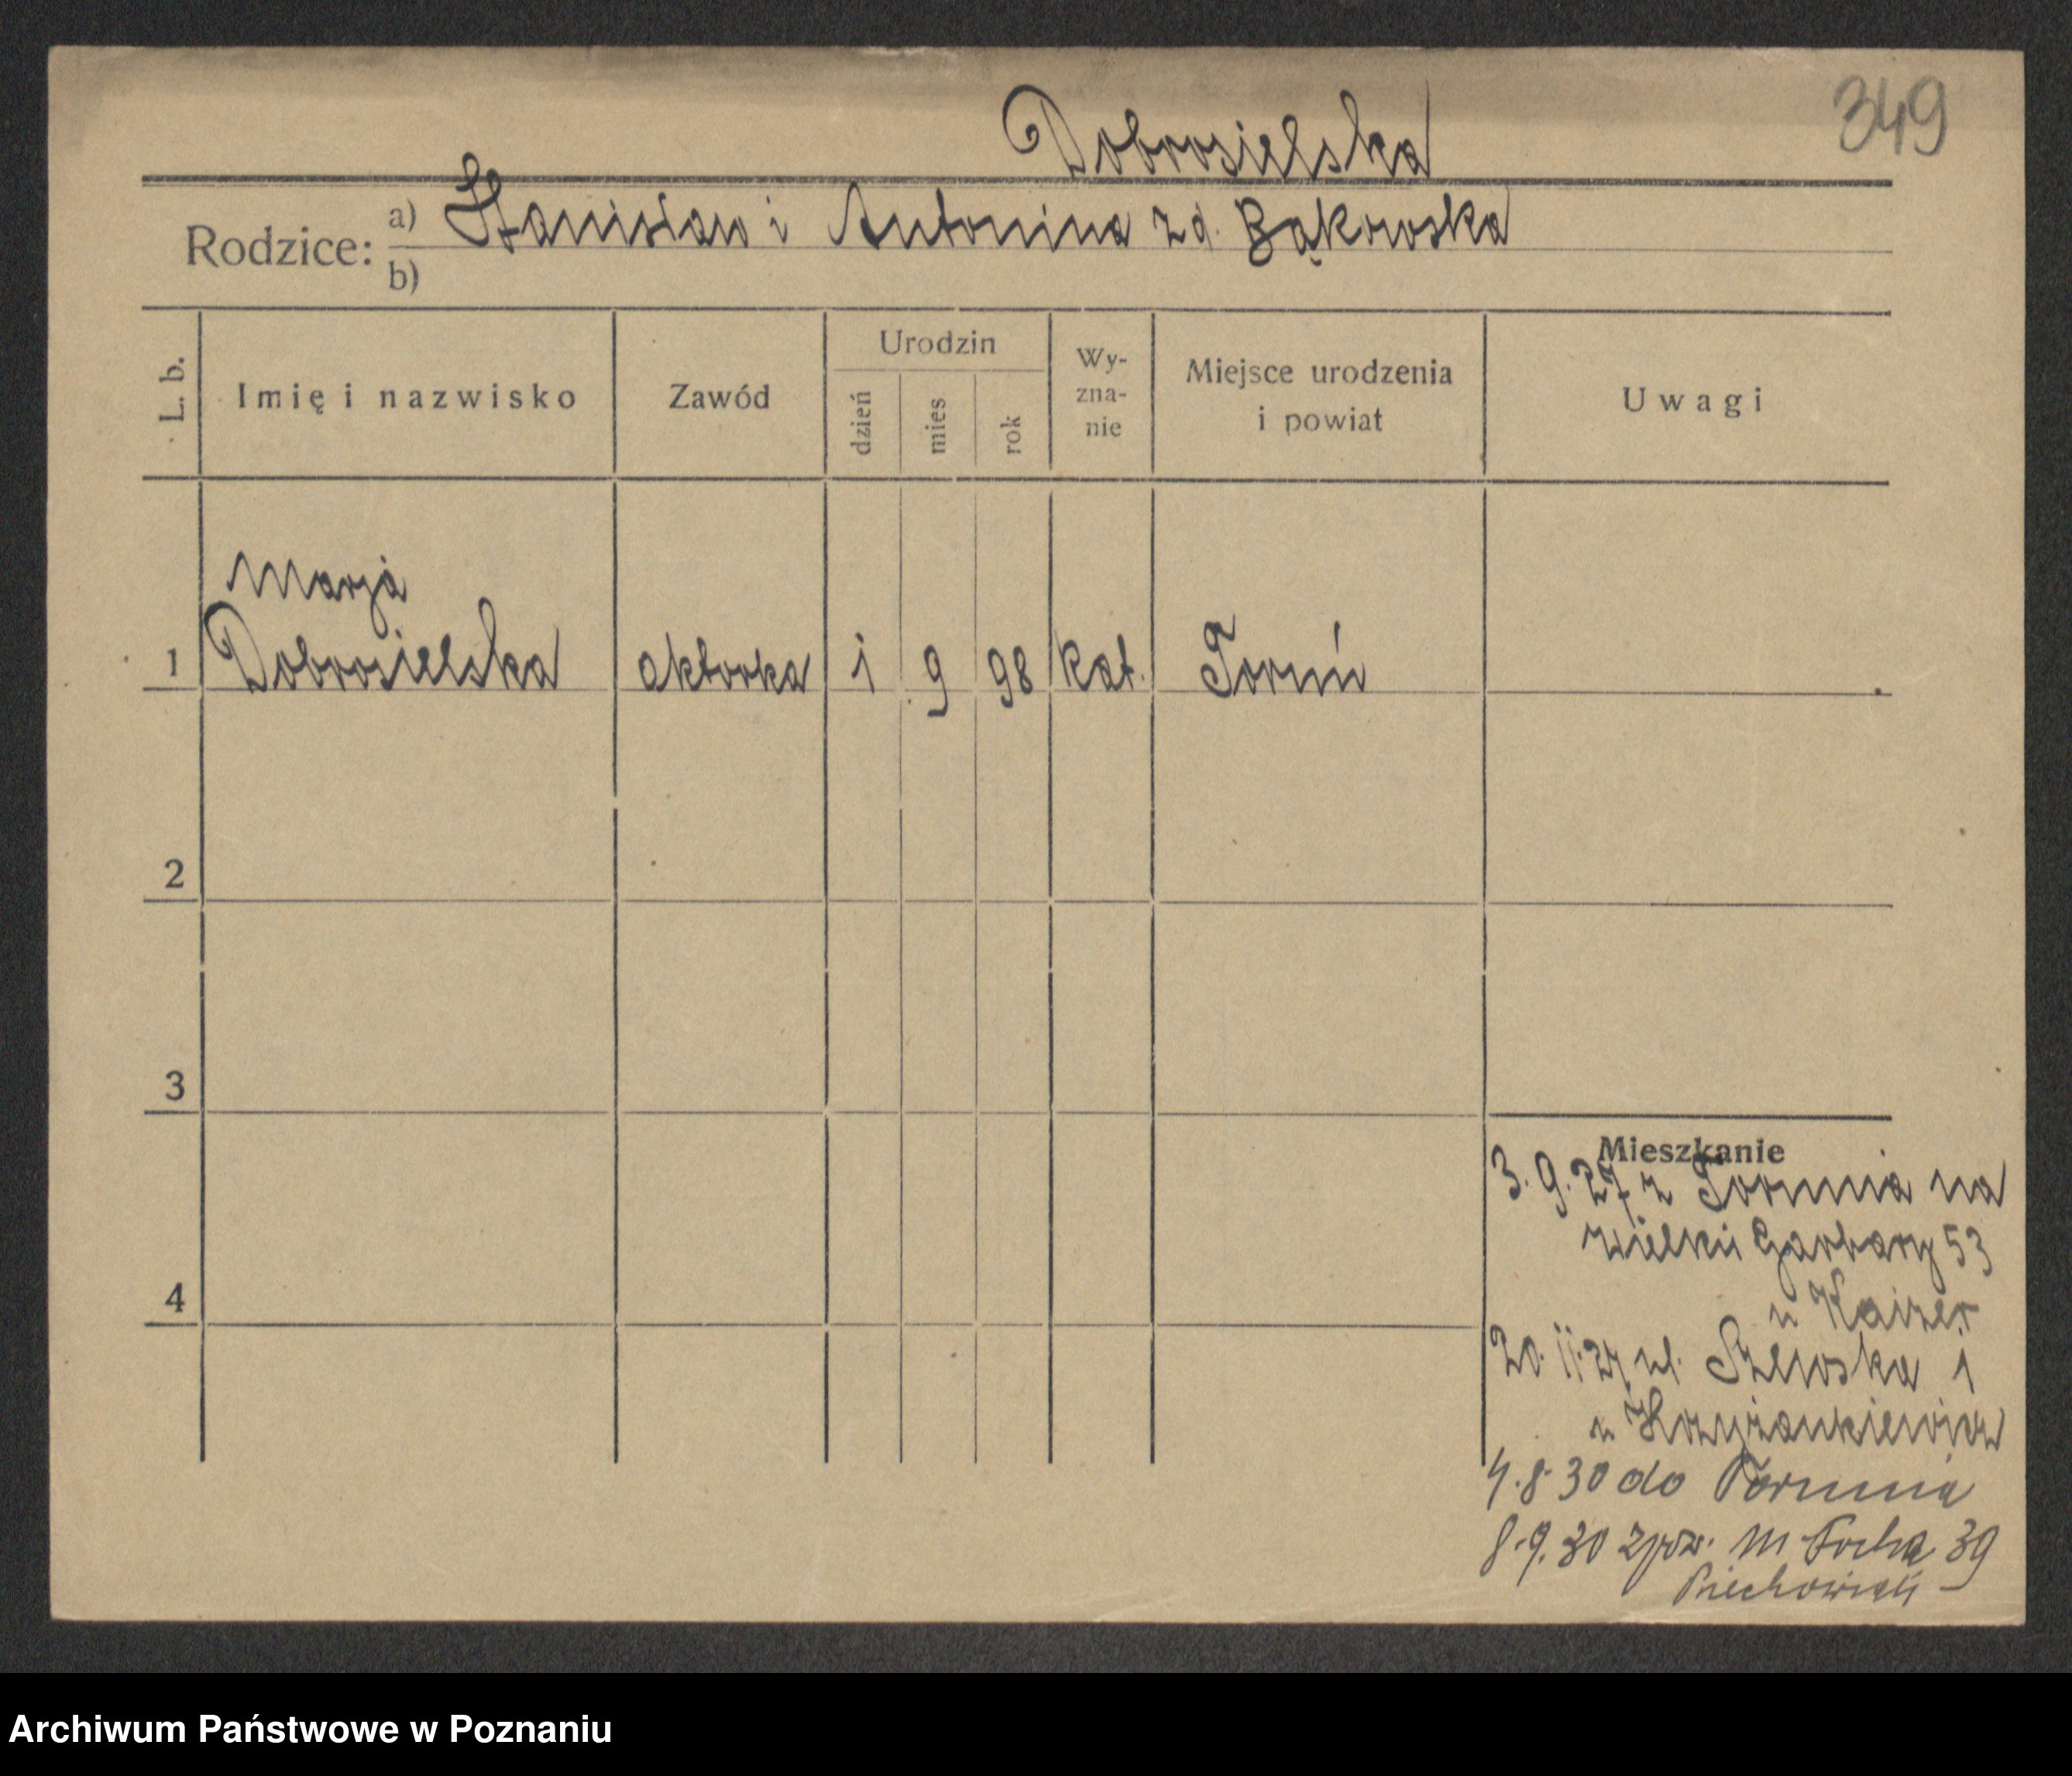 349
Dobrosielska
Rodzice: a) Stanisław i Antonina zd. Bąkowska
b)
L. b.
Imię i nazwisko
Zawód
Urodzin
dzień
mies
rok
Wy-
zna-
nie
Miejsce urodzenia
i powiat
Uwagi
Marja
1 Dobrosielska aktorka 1 9 98 kat. Toruń
2
3
4
Mieszkanie
3.9.27 z Torunia na
Wielkie Garbary 53
u Kaizer
20.11.27 ul. Szewska 1
u Krzyżankiewicz
4.8.30 do Torunia
8.9.30 zpow. M Focha 39
Piechowiak
Archiwum Państwowe w Poznaniu